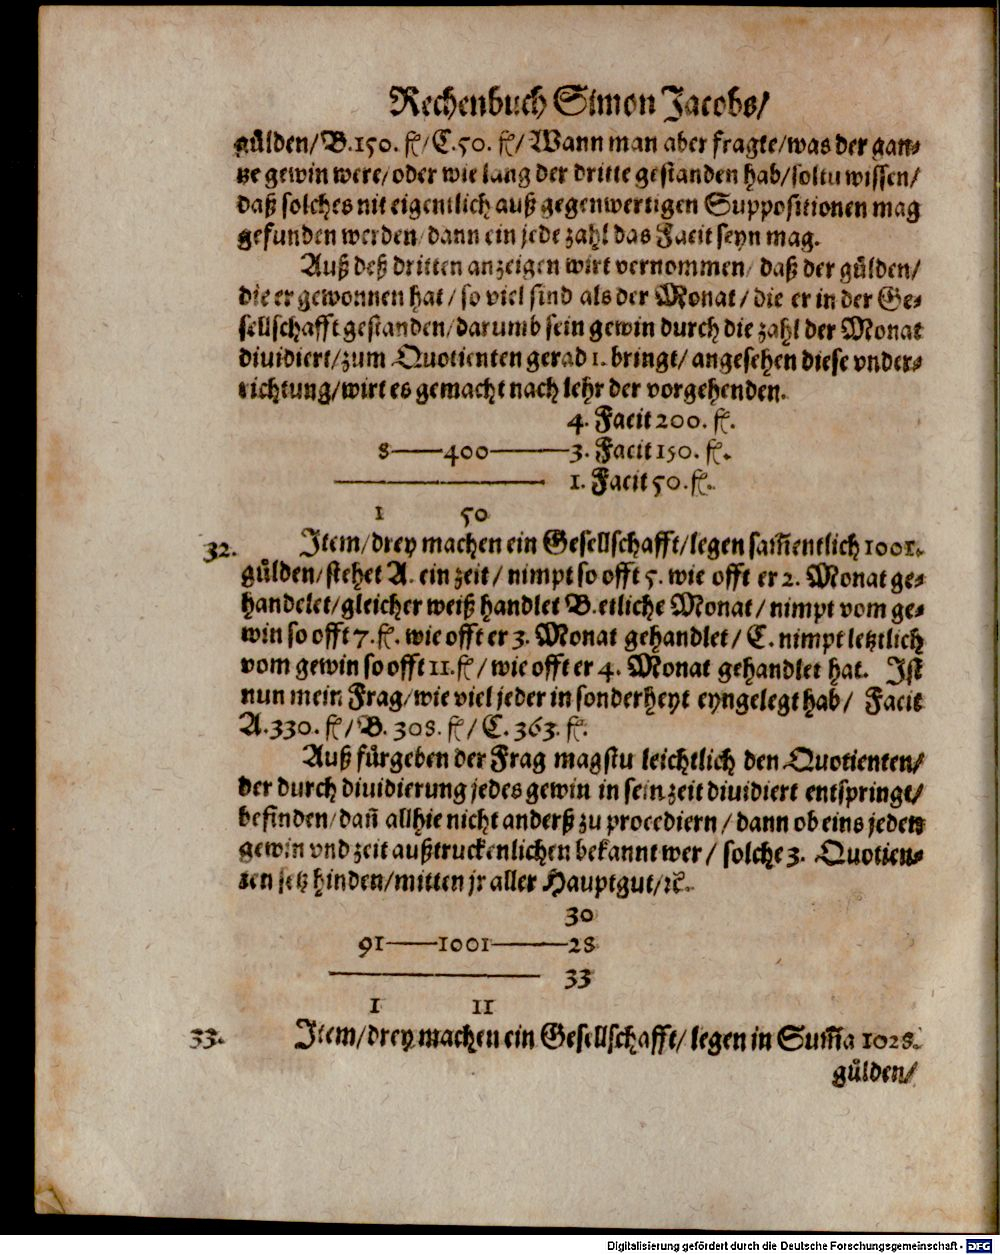 Rechenbuch Simon Jacobs/
gülden/B.150. fl/C.50. fl/Wann man aber fragte/was der gan-
tze gewin were/oder wie lang der dritte gestanden hab/soltu wissen/
daß solches nit eigentlich auß gegenwertigen Suppositionen mag
gefunden werden/dann ein jede zahl das Facit seyn mag.
Auß deß dritten anzeigen wirt vernommen/ daß der gülden/
die er gewonnen hat/so viel sind als der Monat/die er in der Ge-
sellschafft gestanden/darumb sein gewin durch die zahl der Monat
diuidiert/zum Quotienten gerad 1. bringt/angesehen diese vnder-
richtung/wirt es gemacht nach lehr der vorgehenden.
4. Facit 200. fl.
8——400———3. Facit 150. fl.
1. Facit 50. fl.
1 50
32. Item/drey machen ein Gesellschafft/legen sam̄entlich 1001.
gülden/stehet A. ein zeit/nimpt so offt 5. wie offt er 2. Monat ge-
handelet/gleicher weiß handlet B. etliche Monat/nimpt vom ge-
win so offt 7. fl. wie offt er 3. Monat gehandlet/C. nimpt letztlich
vom gewin so offt 11. fl/wie offt er 4. Monat gehandlet hat. Ist
nun mein Frag/wie viel jeder in sonderheyt eyngelegt hab/ Facit
A.330. fl/B. 308. fl/C. 363. fl.
Auß fürgeben der Frag magstu leichtlich den Quotienten/
der durch diuidierung jedes gewin in sein zeit diuidiert entspringt/
befinden/dañ allhie nicht anderß zu procediern/dann ob eins jeden
gewin vnd zeit außtruckenlichen bekannt wer/solche 3. Quotien-
ten setz hinden/mitten jr aller Hauptgut/ꝛc.
30
91——1001———28
33
1 11
33. Item/drey machen ein Gesellschafft/legen in Sum̄a 1028.
gülden/
Digitalisierung gefördert durch die Deutsche Forschungsgemeinschaft - DFG